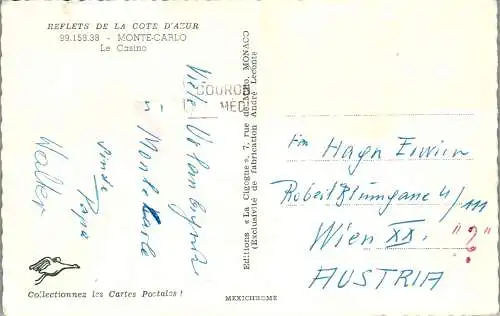 REFLETS DE LA COTE D'AZUR
99.158.38 - MONTE-CARLO
Le Casino
Viele Urlaubsgrüsse
Monte Carlo
Papa
Walter
Collectionnez les Cartes Postales !
Editions « La Cigogne », 7, rue de Millo, MONACO
(Exclusivité de fabrication André Leconte)
MEXICHROME
COURO
MED
Hagn Erwin
Robert Blumgasse 4/111
Wien XX. "?"
AUSTRIA